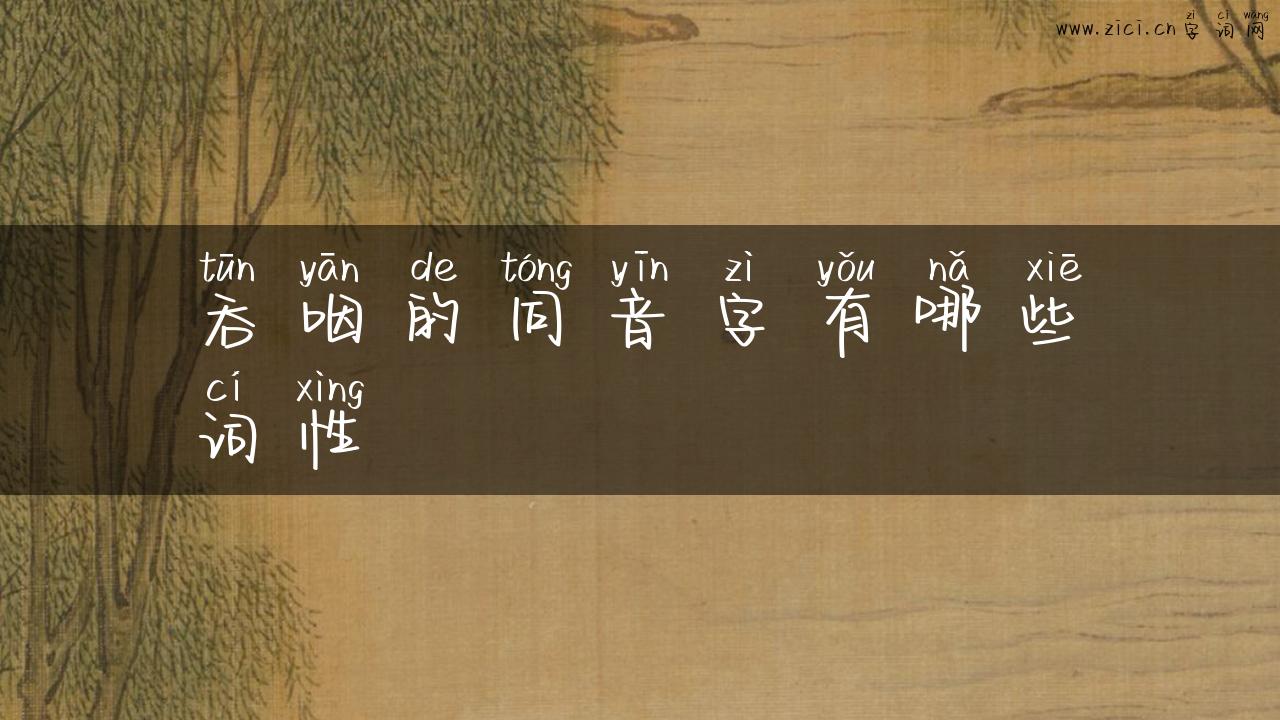 zì cí wǎng
www.zici.cn 字词网
tūn yān de tóng yīn zì yǒu nǎ xiē
吞咽的同音字有哪些
cí xìng
词性